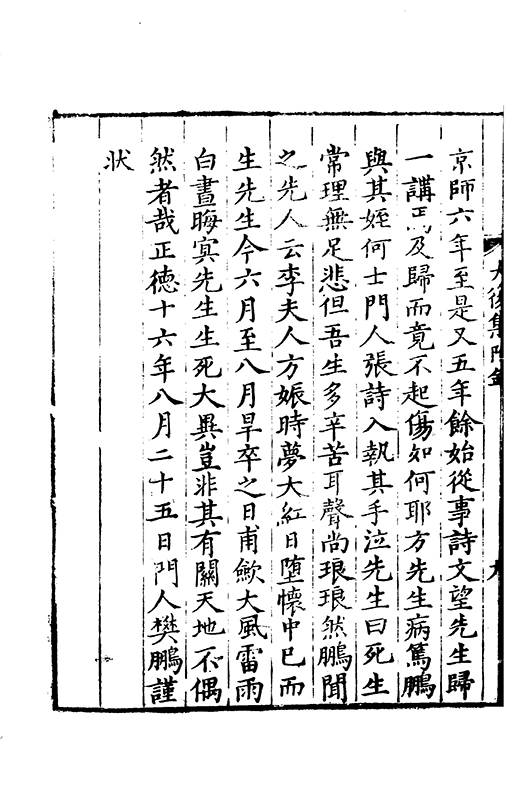 大復集附錄
九
京師六年至是又五年餘始從事詩文望先生歸
一講焉及歸而竟不起傷如何耶方先生病篤鵬
與其姪何士門人張詩入執其手泣先生曰死生
常理無足悲但吾生多辛苦耳聲尚琅琅然鵬聞
之先人云李夫人方娠時夢大紅日堕懷中已而
生先生今六月至八月旱卒之日甫歛大風雷雨
白晝晦冥先生生死大異豈非其有關天地不偶
然者哉正德十六年八月二十五日門人樊鵬謹
状